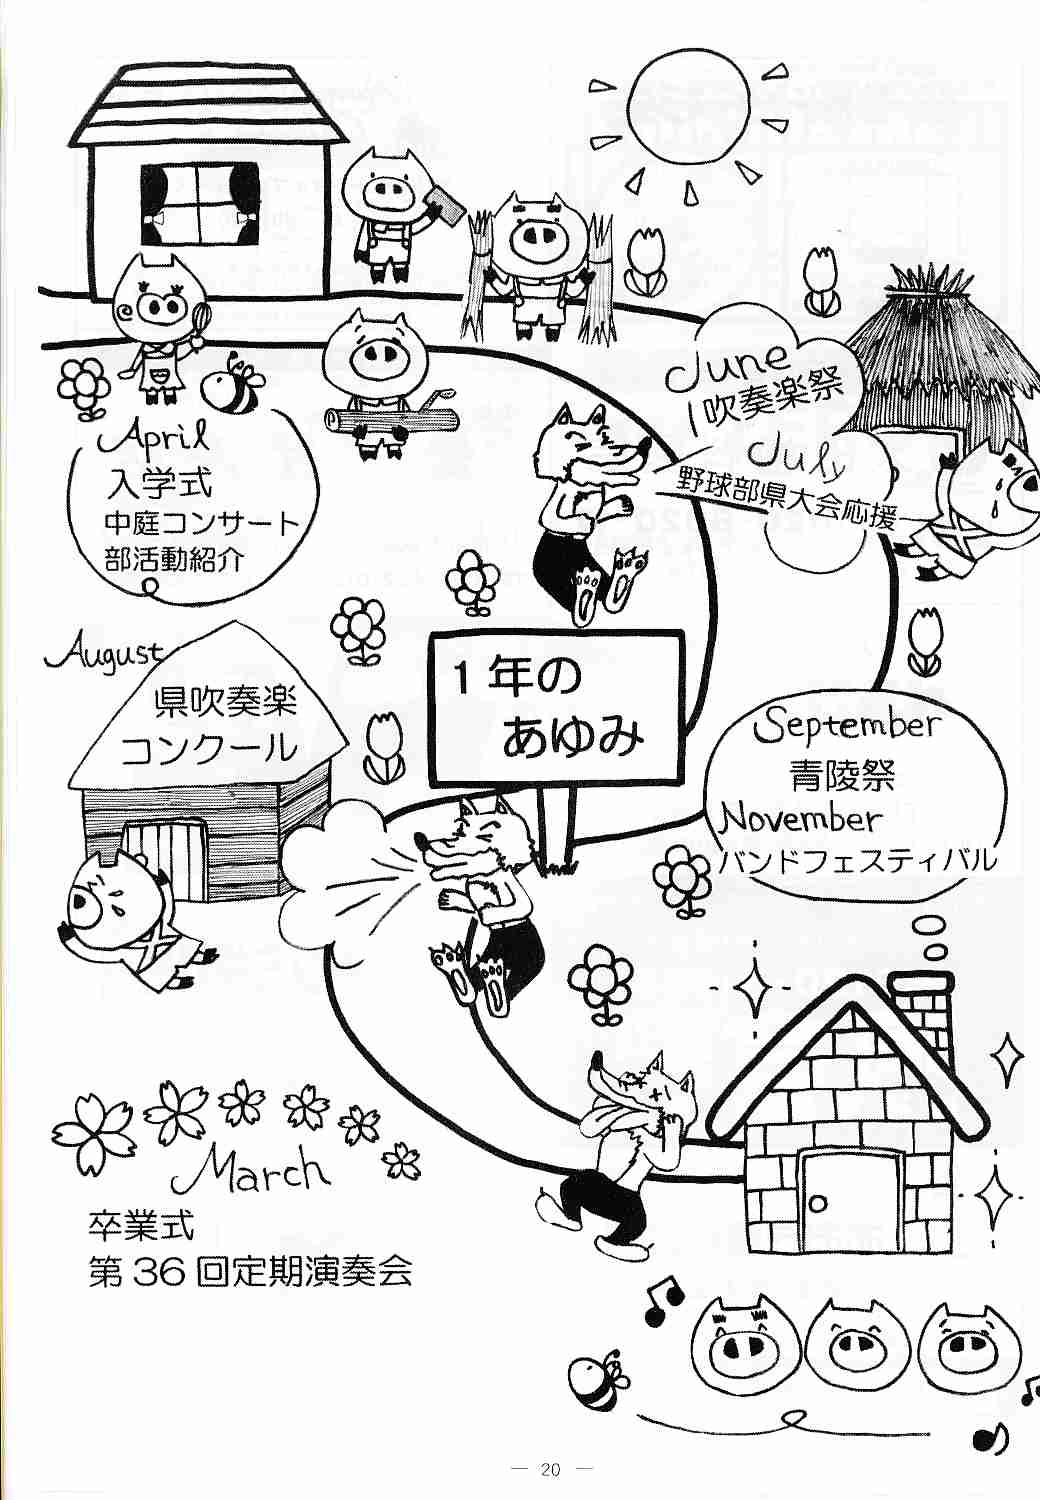 April
入学式
中庭コンサート
部活動紹介
June
吹奏楽祭
July
野球部県大会応援
August
県吹奏楽
コンクール
1年の
あゆみ
September
青陵祭
November
バンドフェスティバル
March
卒業式
第36回定期演奏会
— 20 —